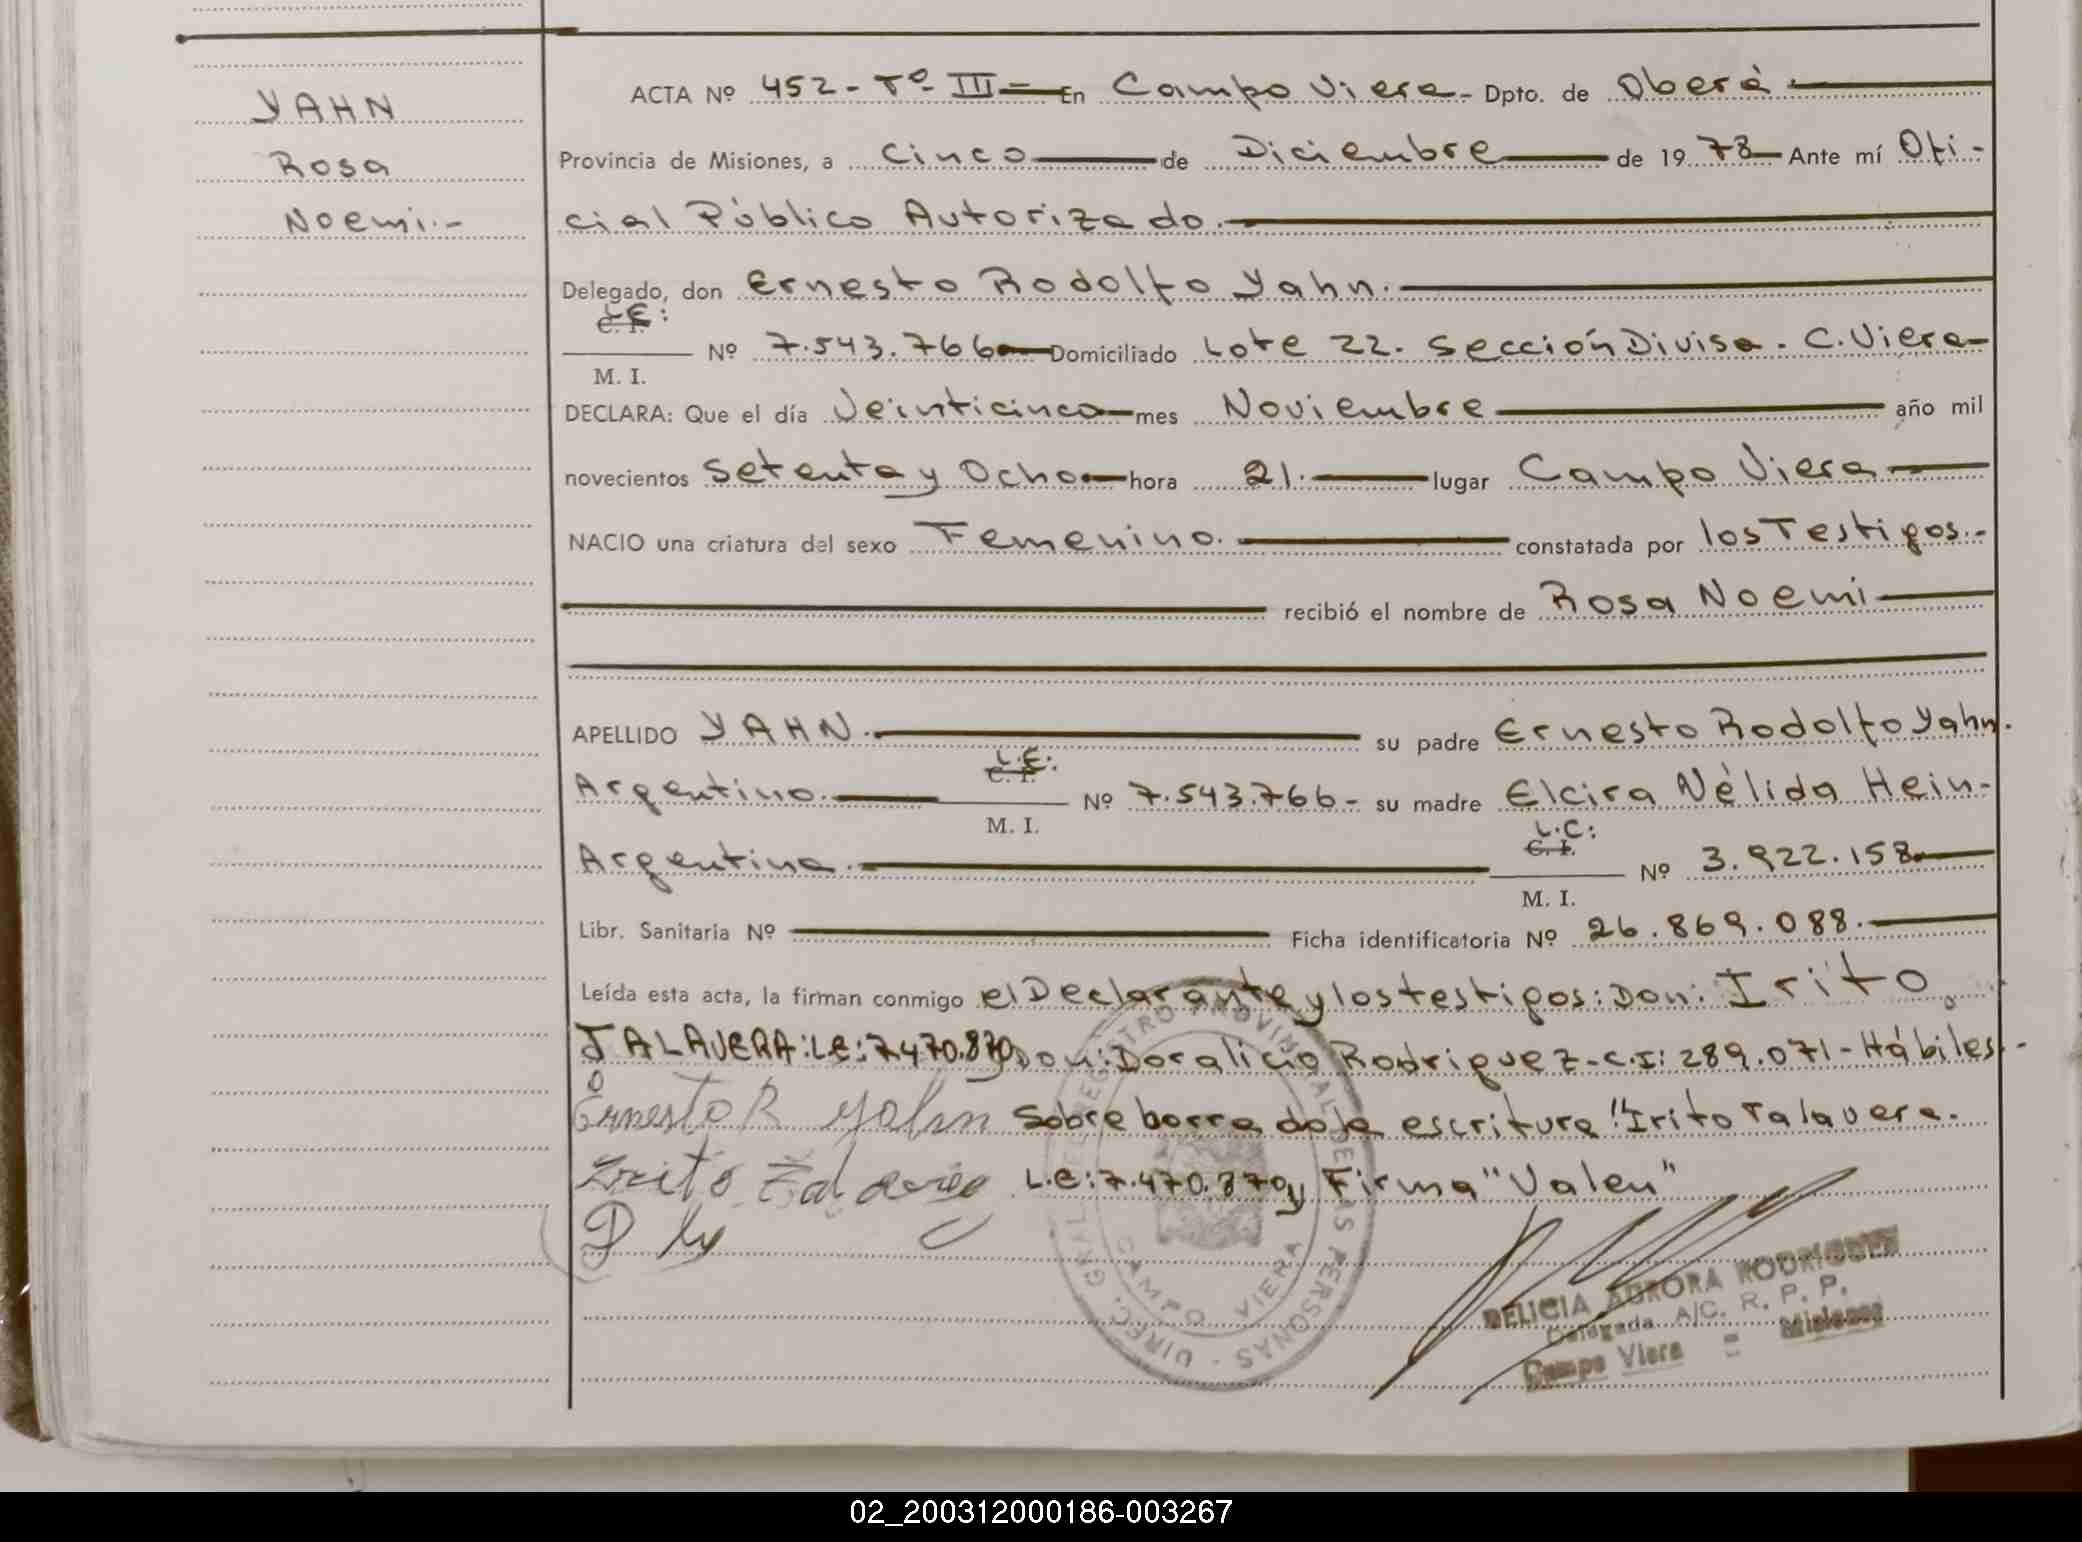 YAHN
Rosa
Noemi.-
ACTA Nº 452 - Tº III - En Campo Viera - Dpto. de Oberá
Provincia de Misiones, a cinco de Diciembre de 1978 Ante mí Ofi-
cial Público Autorizado.
Delegado, don Ernesto Rodolfo Yahn.
L.E:
C. I.
M. I.
Nº 7.543.766 Domiciliado Lote 22. Sección Divisa. C. Viera
DECLARA: Que el día Veinticinco mes Noviembre año mil
novecientos Setenta y Ocho hora 21. lugar Campo Viera
NACIO una criatura del sexo Femenino. constatada por los Testigos.-
recibió el nombre de Rosa Noemi
APELLIDO YAHN. su padre Ernesto Rodolfo Yahn.
Argentino. L.E: C. I. M. I. Nº 7.543.766- su madre Elcira Nélida Hein-
Argentina. L.C: C. I. M. I. Nº 3.922.158
Libr. Sanitaria Nº Ficha identificatoria Nº 26.869.088.
Leída esta acta, la firman conmigo el Declarante y los testigos: Don: Irito
TALAVERA: L.E: 7.470.870 y Don: Doralicio Rodriguez - C.I: 289.071 - Hábiles.-
Ernesto R Yahn Sobre borrado la escritura "Irito Talavera.
Irito L.E: 7.470.870 y Firma "Valen"
DIREC. GRAL. DEL REGISTRO PROVINCIAL DE LAS PERSONAS
CAMPO VIERA
DELICIA AURORA RODRIGUEZ
Delegada A/C. R. P. P.
Campo Viera - Misiones
02_200312000186-003267